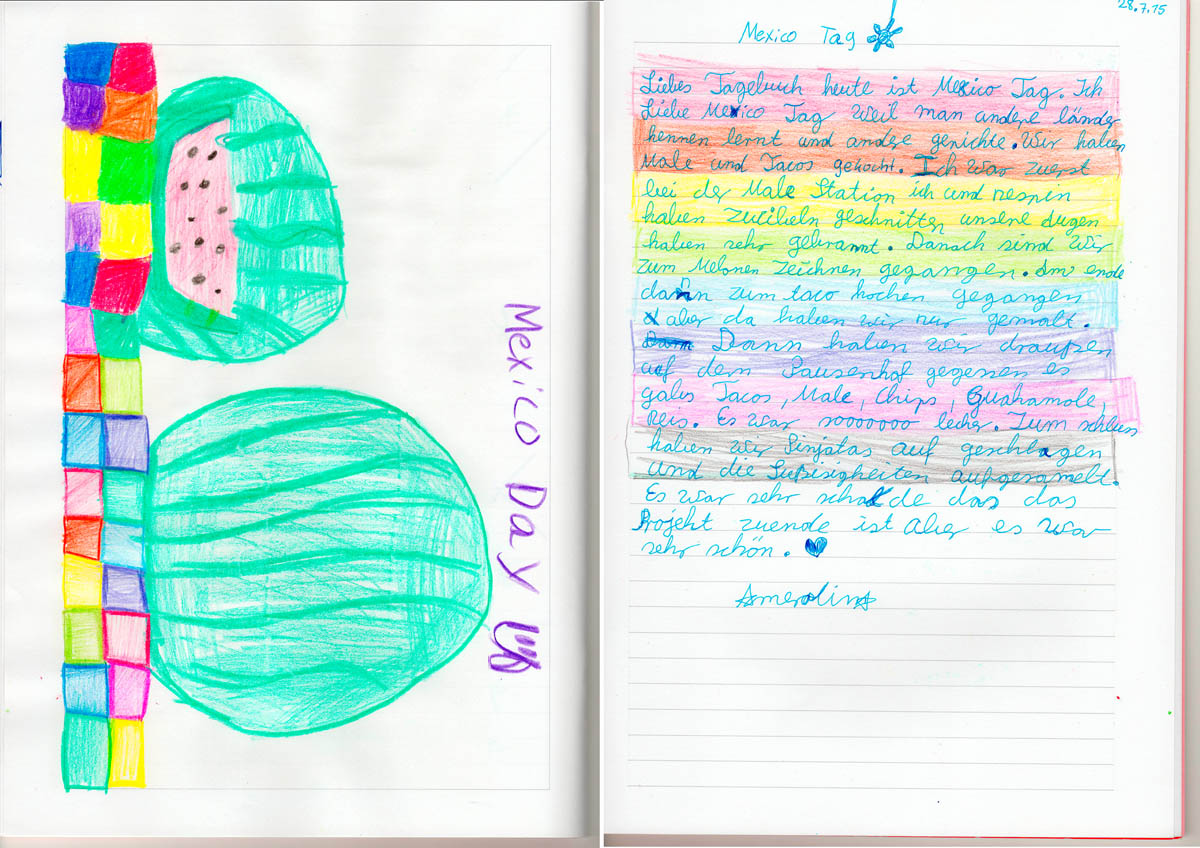 Mexico Day
28.7.15
Mexico Tag
Liebes Tagebuch heute ist Mexico Tag. Ich
Liebe Mexico Tag weil man andere länder
kennen lernt und andere gerichte. Wir haben
Male und Tacos gekocht. Ich war zuerst
bei der Male Station ich und nesrin
haben zwibeln geschnitten unsere Augen
haben sehr gebrannt. Danach sind wir
zum Melonen zeichnen gegangen. Am ende
dann zum taco kochen gegangen
aber da haben wir nur gemalt.
Dann haben wir draußen
auf dem Pausenhof gegessen es
gabs Tacos, Male, Chips, Guakamole,
Reis. Es war sooooooo lecker. Zum schluss
haben wir Pinjatas auf geschlagen
und die Sußisigkeiten aufgesamelt.
Es war sehr schade das das
Projekt zuende ist aber es war
sehr schön.
Amerolina